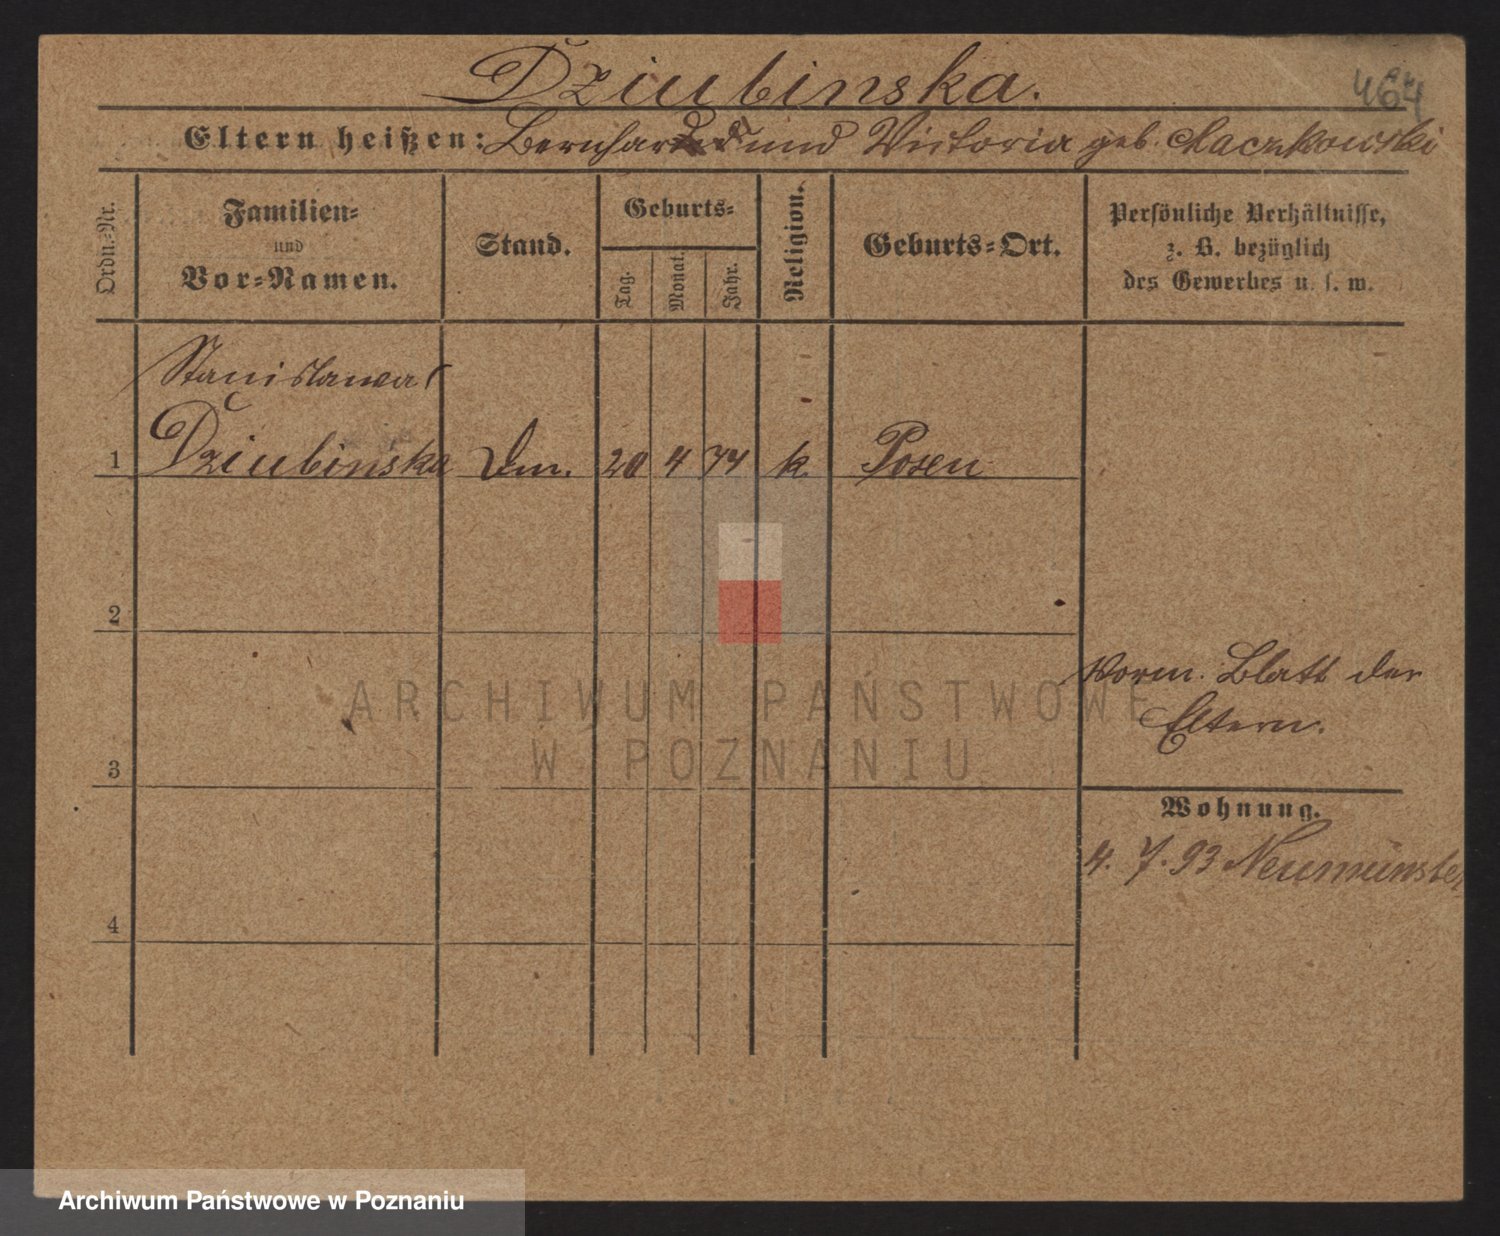 Dziubinska.
464
Eltern heißen: Bernhard und Victoria geb. Maczkowski
Ordn.-Nr.
Familien-
und
Vor-Namen.
Stand.
Geburts-
Tag.
Monat.
Jahr.
Religion.
Geburts-Ort.
Persönliche Verhältnisse,
z. B. bezüglich
des Gewerbes u. s. w.
Stanislawa
1 Dziubinska 20 4 74 k Posen
2
Vorm. Blatt der
Eltern.
ARCHIWUM PAŃSTWOWE
W POZNANIU
3
Wohnung.
4. 7. 93 Neumünster
4
Archiwum Państwowe w Poznaniu